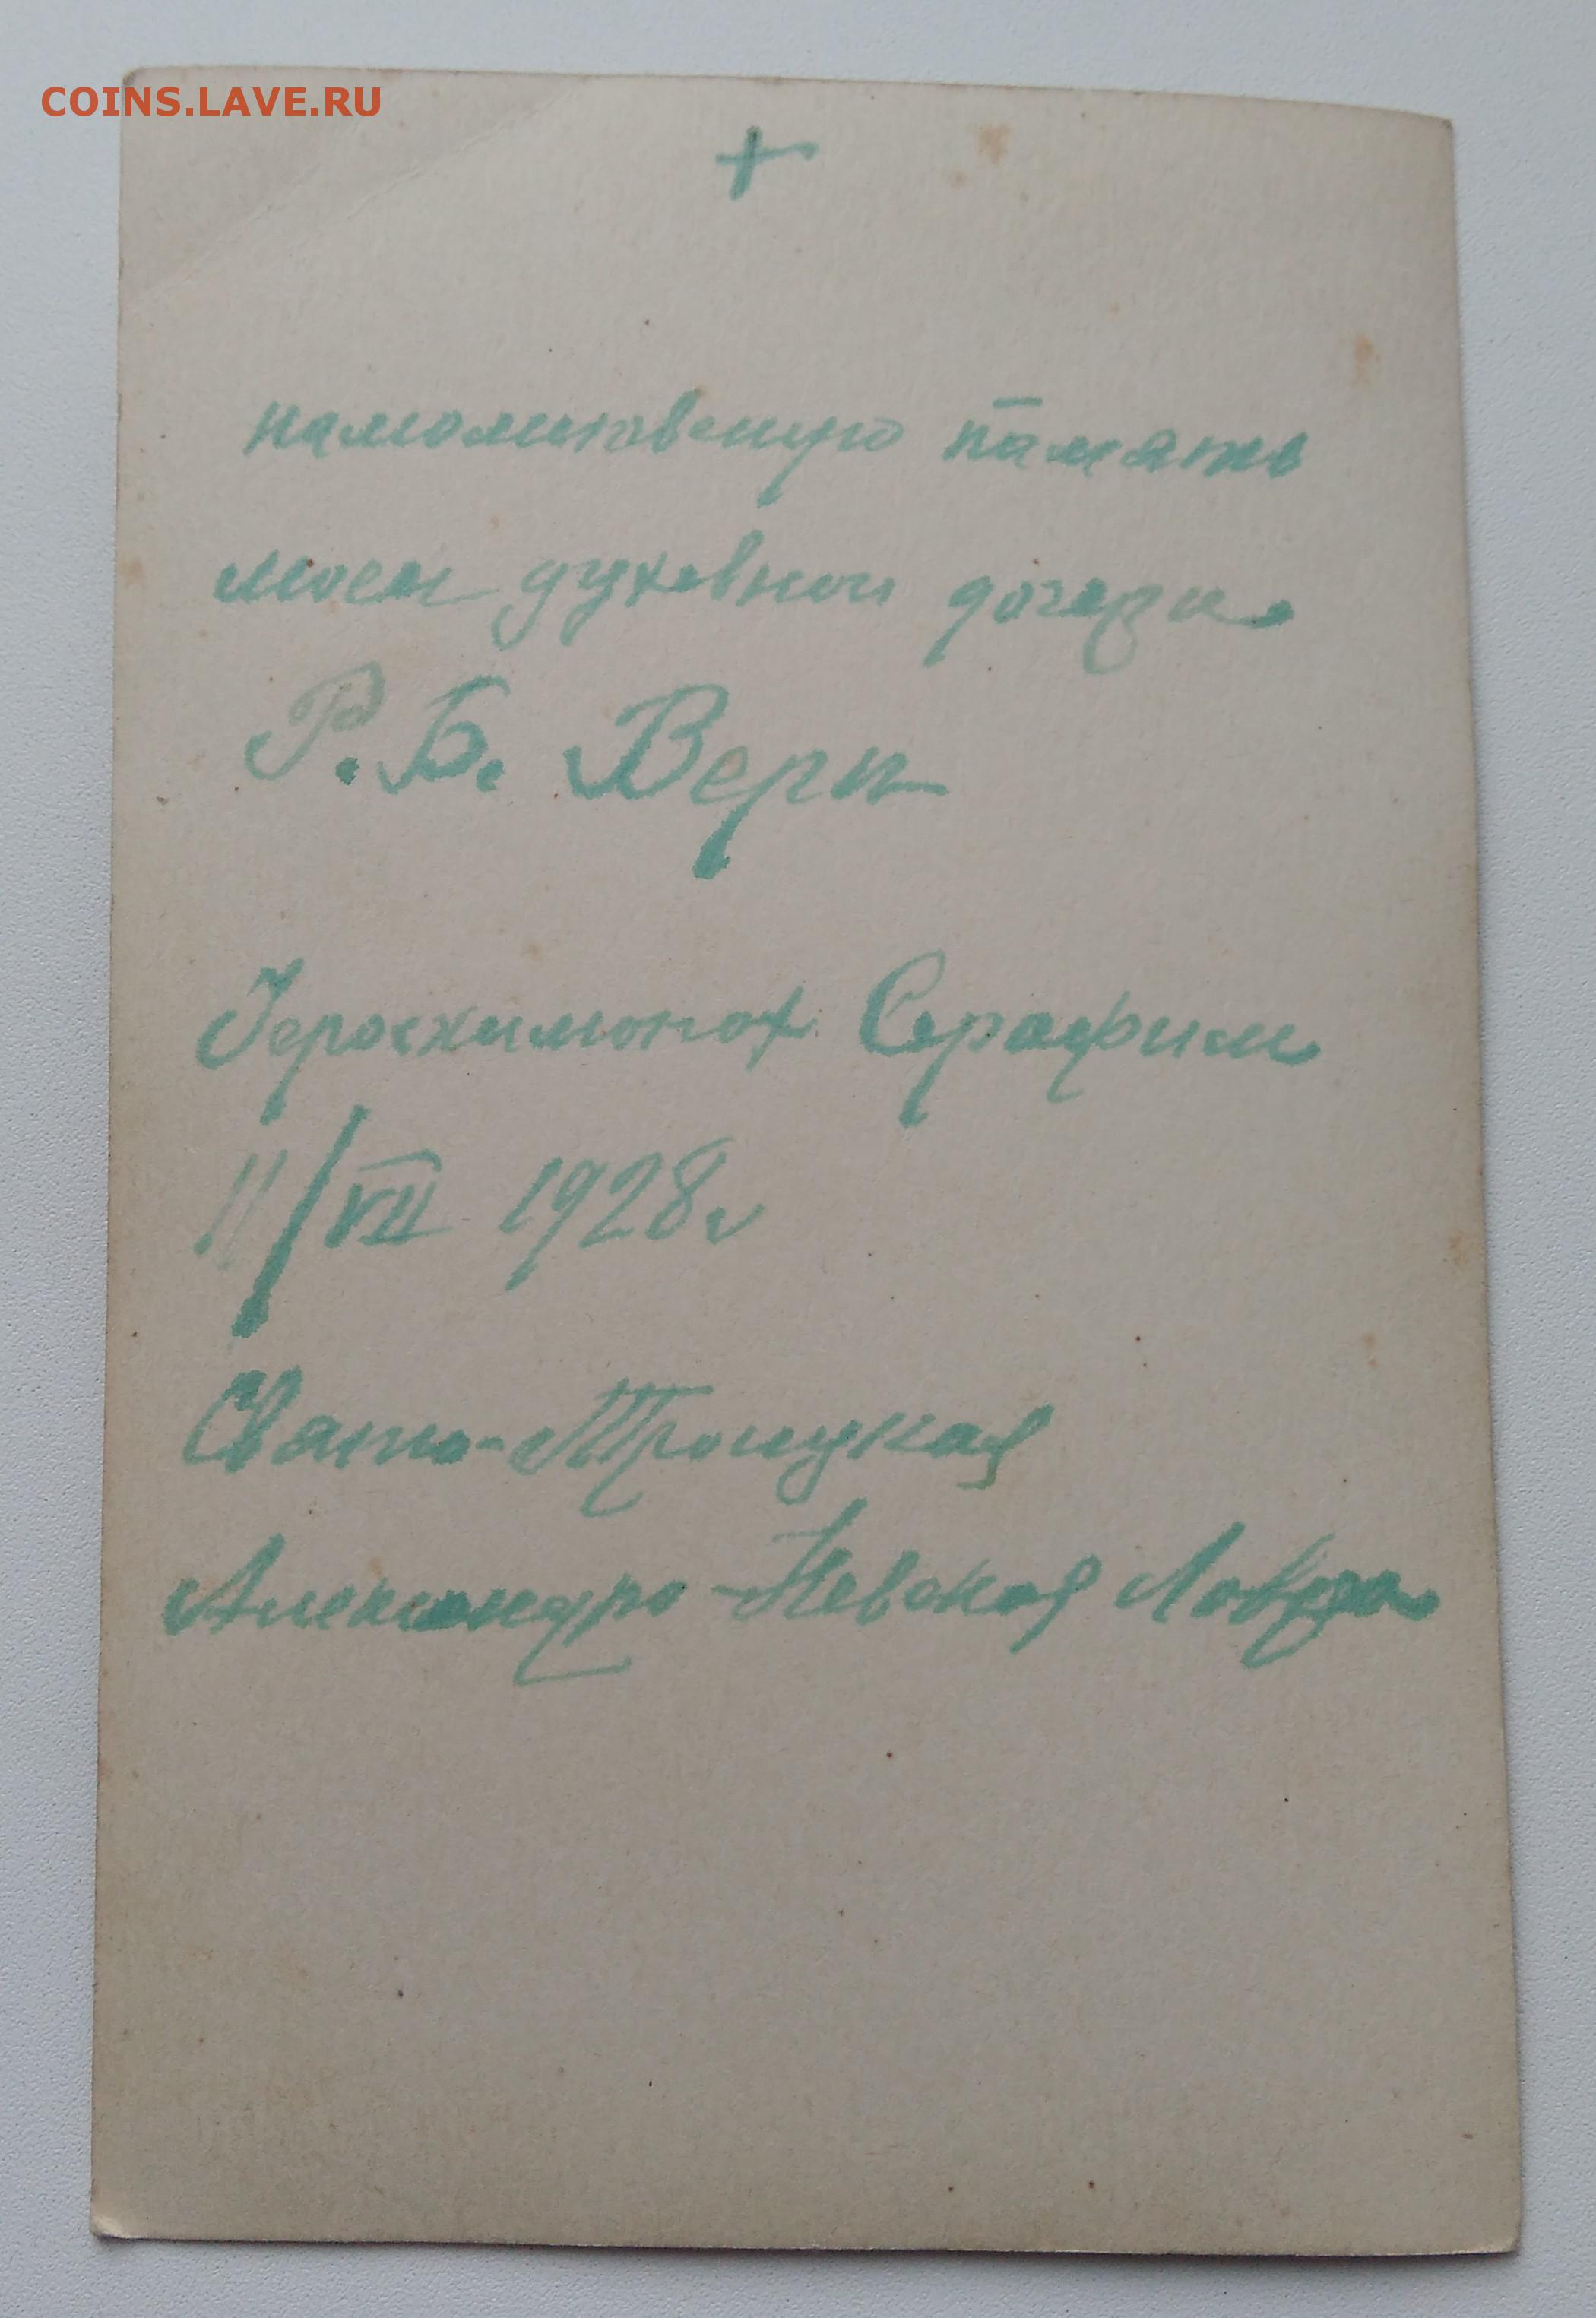 COINS.LAVE.RU
+
намолитвеную память
моей духовной дочери
Р. Б. Веры
Іеросхимонах Серафим
11/VII 1928 г
Свято-Троицкая
Александро-Невская Лавра